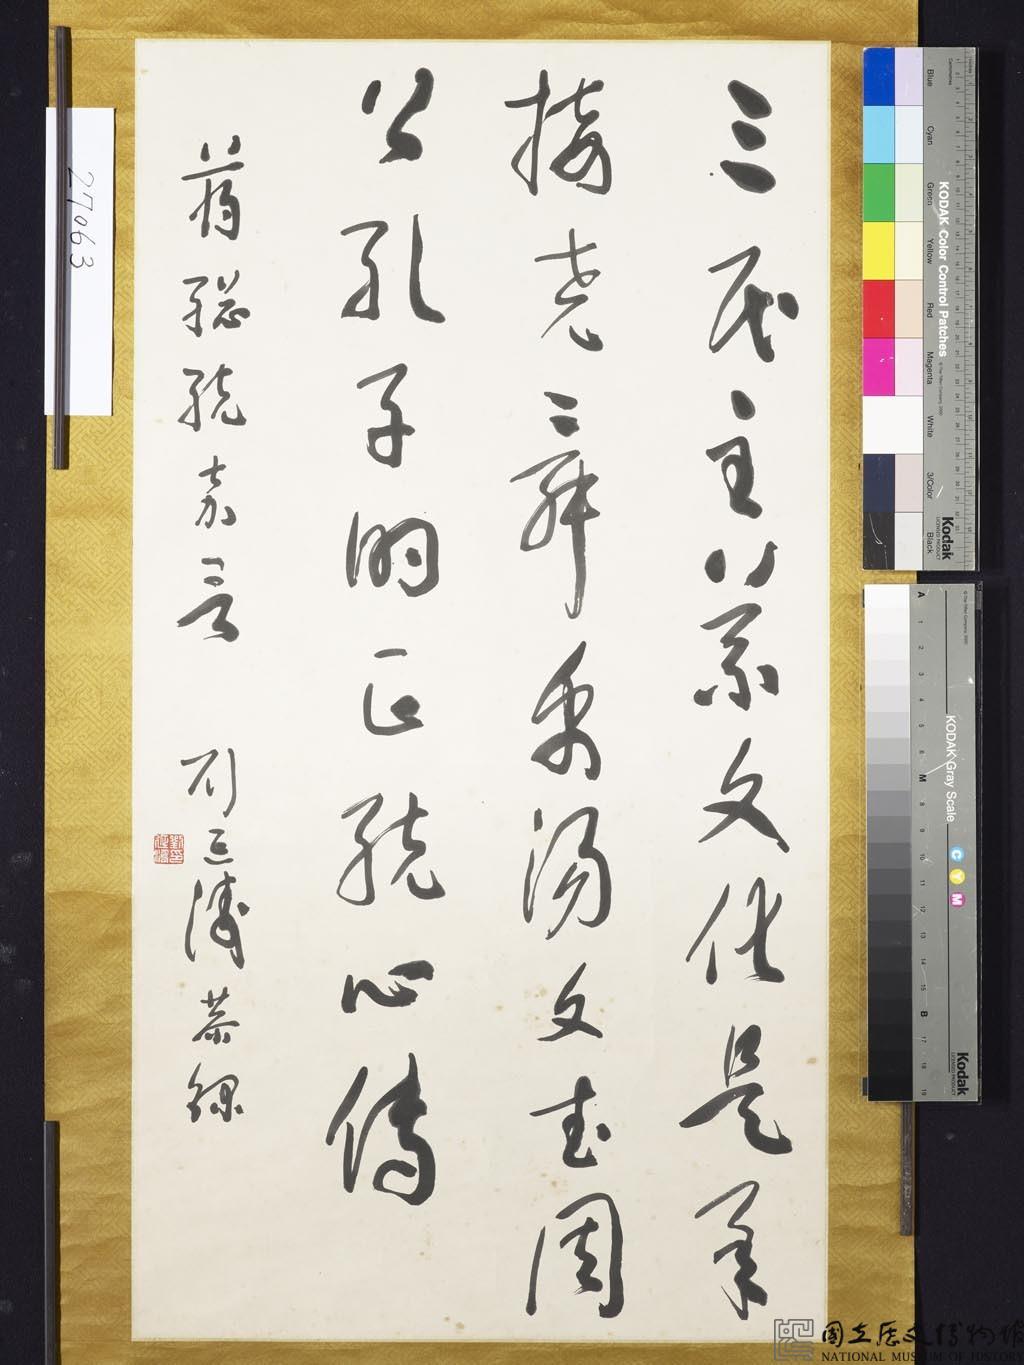 三民主义文化是承
接尧舜禹汤文武周
公孔子的正統心傳
蔣總統嘉言
劉延濤恭錄
27063
KODAK Color Control Patches
Blue
Cyan
Green
Yellow
Red
Magenta
White
3/Color
Black
Kodak
KODAK Gray Scale
C
Y
M
A
1
2
3
4
5
6
M
8
9
10
11
12
13
14
15
B
17
18
19
Kodak
國立歷史博物館
NATIONAL MUSEUM OF HISTORY